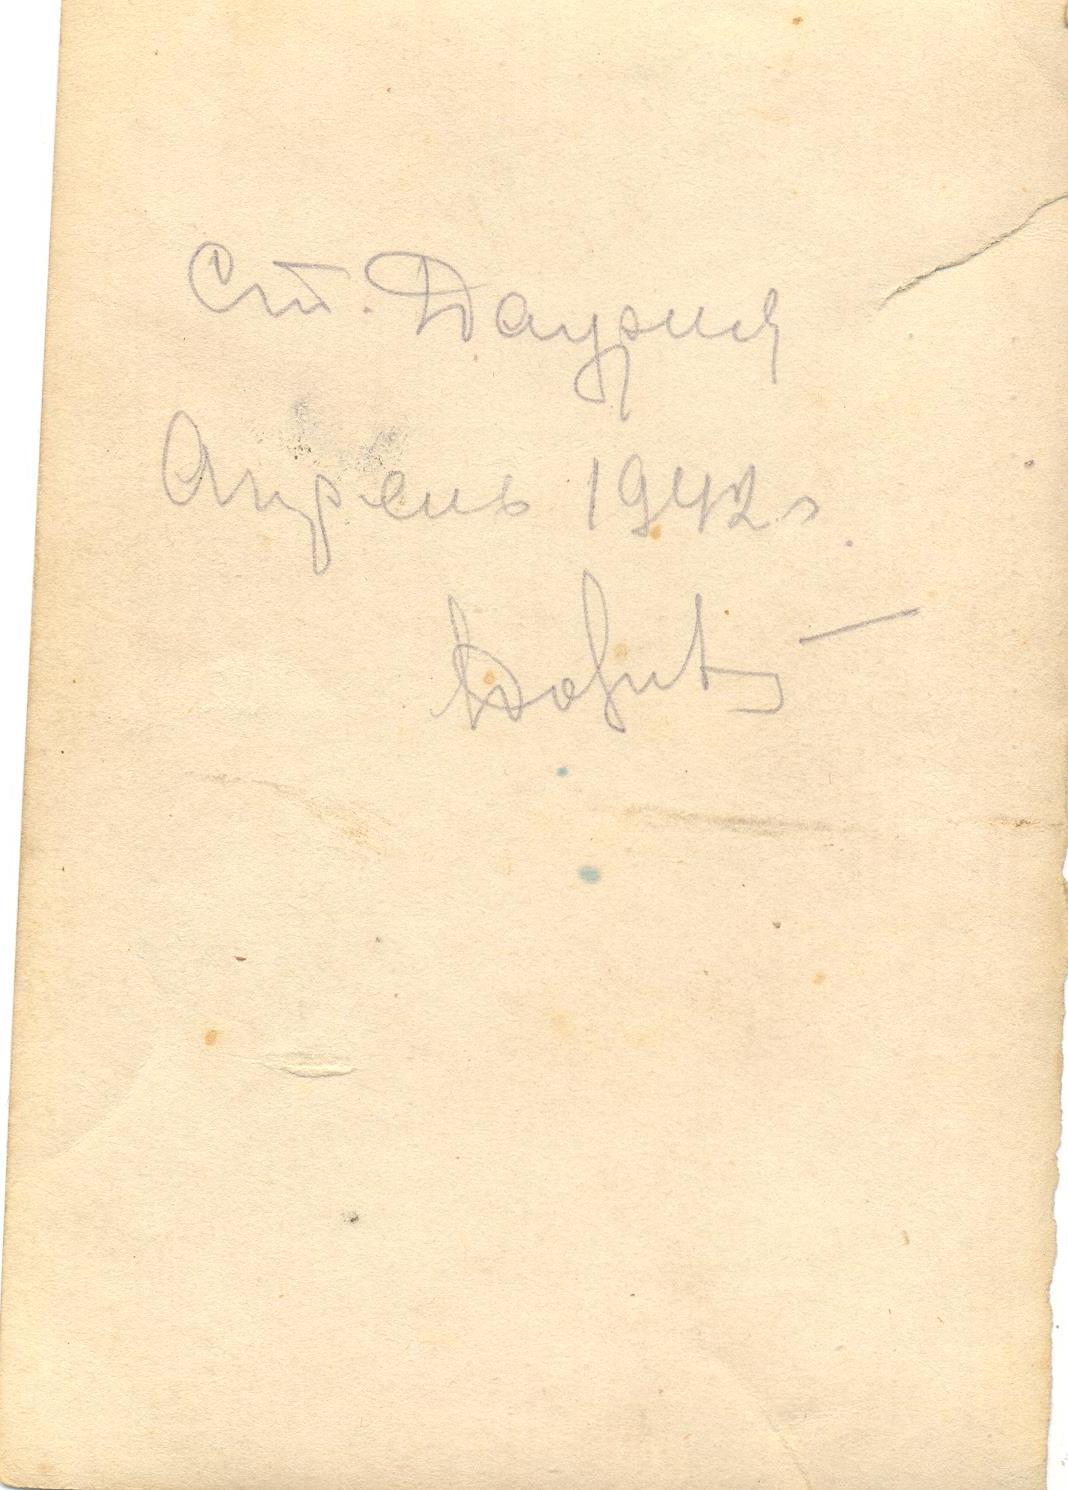 Ст. Даурия
Апрель 1942 г.